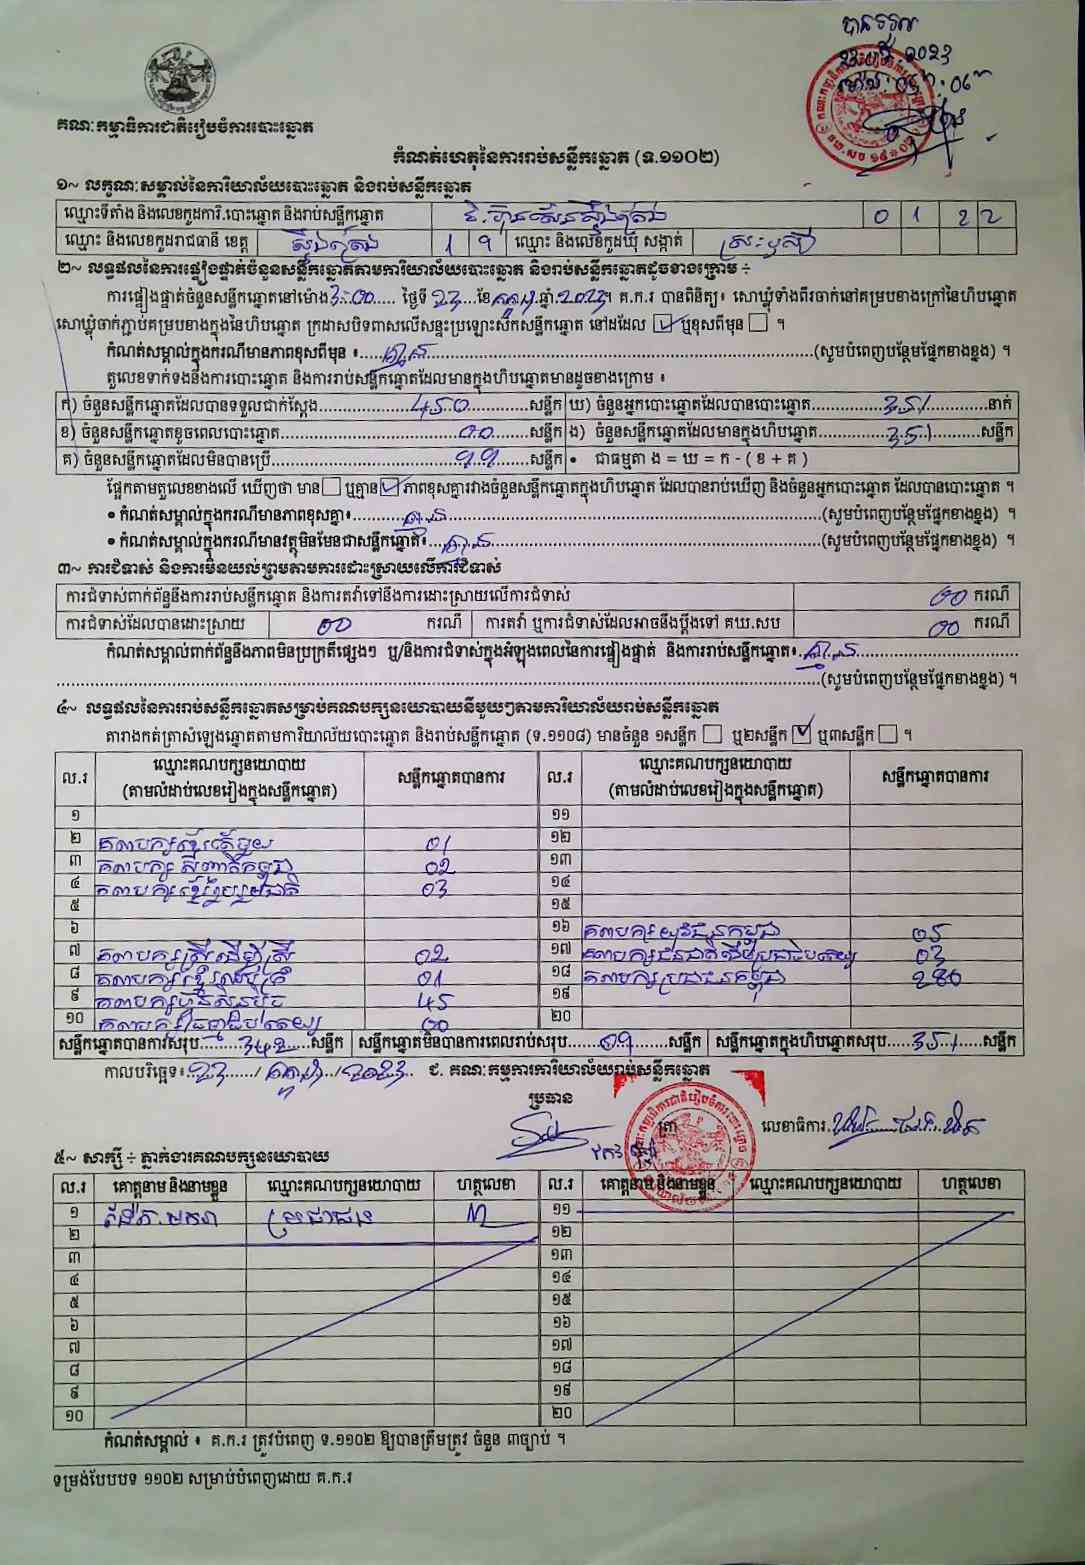 បានទទួល
2023
គណៈកម្មាធិការជាតិរៀបចំការបោះឆ្នោត
កំណត់ហេតុនៃការរាប់សន្លឹកឆ្នោត (ទ.១១០២)
១~ លក្ខណៈសម្គាល់នៃការិយាល័យបោះឆ្នោត និងរាប់សន្លឹកឆ្នោត
ឈ្មោះទីតាំង និងលេខកូដការិ.បោះឆ្នោត និងរាប់សន្លឹកឆ្នោត វិ.ហ៊ុនសែនស្ទឹងត្រែង 0 1 2 2
ឈ្មោះ និងលេខកូដរាជធានី ខេត្ត ស្ទឹងត្រែង 1 9 ឈ្មោះ និងលេខកូដឃុំ សង្កាត់ ស្រះឫស្សី
២~ លទ្ធផលនៃការផ្ទៀងផ្ទាត់ចំនួនសន្លឹកឆ្នោតតាមការិយាល័យបោះឆ្នោត និងរាប់សន្លឹកឆ្នោតដូចខាងក្រោម ÷
ការផ្ទៀងផ្ទាត់ចំនួនសន្លឹកឆ្នោតនៅម៉ោង 3:00 ថ្ងៃទី 23 ខែ កក្កដា ឆ្នាំ 2023។ គ.ក.រ បានពិនិត្យ៖ សោឃ្លុំទាំងពីរចាក់នៅគម្របខាងក្រៅនៃហិបឆ្នោត
សោឃ្លុំចាក់ភ្ជាប់គម្របខាងក្នុងនៃហិបឆ្នោត ក្រដាសបិទពាសលើសន្ទះប្រឡោះសឹកសន្លឹកឆ្នោត នៅដដែល ☑ ឬខុសពីមុន ☐ ។
កំណត់សម្គាល់ក្នុងករណីមានភាពខុសពីមុន ៖ គ្មាន (សូមបំពេញបន្ថែមផ្នែកខាងខ្នង) ។
តួលេខទាក់ទងនឹងការបោះឆ្នោត និងការរាប់សន្លឹកឆ្នោតដែលមានក្នុងហិបឆ្នោតមានដូចខាងក្រោម ៖
ក) ចំនួនសន្លឹកឆ្នោតដែលបានទទួលជាក់ស្តែង 450 សន្លឹក ឃ) ចំនួនអ្នកបោះឆ្នោតដែលបានបោះឆ្នោត 351 នាក់
ខ) ចំនួនសន្លឹកឆ្នោតខូចពេលបោះឆ្នោត 00 សន្លឹក ង) ចំនួនសន្លឹកឆ្នោតដែលមានក្នុងហិបឆ្នោត 351 សន្លឹក
គ) ចំនួនសន្លឹកឆ្នោតដែលមិនបានប្រើ 99 សន្លឹក • ជាធម្មតា ង = ឃ = ក - ( ខ + គ )
ផ្អែកតាមតួលេខខាងលើ ឃើញថា មាន ☐ ឬគ្មាន ☑ ភាពខុសគ្នារវាងចំនួនសន្លឹកឆ្នោតក្នុងហិបឆ្នោត ដែលបានរាប់ឃើញ និងចំនួនអ្នកបោះឆ្នោត ដែលបានបោះឆ្នោត ។
• កំណត់សម្គាល់ក្នុងករណីមានភាពខុសគ្នា៖ គ្មាន (សូមបំពេញបន្ថែមផ្នែកខាងខ្នង) ។
• កំណត់សម្គាល់ក្នុងករណីមានវត្ថុមិនមែនជាសន្លឹកឆ្នោត៖ គ្មាន (សូមបំពេញបន្ថែមផ្នែកខាងខ្នង) ។
៣~ ការជំទាស់ និងការមិនយល់ព្រមតាមការដោះស្រាយលើការជំទាស់
ការជំទាស់ពាក់ព័ន្ធនឹងការរាប់សន្លឹកឆ្នោត និងការតវ៉ាទៅនឹងការដោះស្រាយលើការជំទាស់ 00 ករណី
ការជំទាស់ដែលបានដោះស្រាយ 00 ករណី ការតវ៉ា ឬការជំទាស់ដែលអាចនឹងប្តឹងទៅ គឃ.សប 00 ករណី
កំណត់សម្គាល់ពាក់ព័ន្ធនឹងភាពមិនប្រក្រតីផ្សេងៗ ឬ/និងការជំទាស់ក្នុងអំឡុងពេលនៃការផ្ទៀងផ្ទាត់ និងការរាប់សន្លឹកឆ្នោត៖ គ្មាន
(សូមបំពេញបន្ថែមផ្នែកខាងខ្នង) ។
៤~ លទ្ធផលនៃការរាប់សន្លឹកឆ្នោតសម្រាប់គណបក្សនយោបាយនីមួយៗតាមការិយាល័យរាប់សន្លឹកឆ្នោត
តារាងកត់ត្រាសំឡេងឆ្នោតតាមការិយាល័យបោះឆ្នោត និងរាប់សន្លឹកឆ្នោត (ទ.១១០៨) មានចំនួន ១សន្លឹក ☐ ឬ២សន្លឹក ☑ ឬ៣សន្លឹក ☐ ។
ល.រ ឈ្មោះគណបក្សនយោបាយ (តាមលំដាប់លេខរៀងក្នុងសន្លឹកឆ្នោត) សន្លឹកឆ្នោតបានការ ល.រ ឈ្មោះគណបក្សនយោបាយ (តាមលំដាប់លេខរៀងក្នុងសន្លឹកឆ្នោត) សន្លឹកឆ្នោតបានការ
១ ១១
២ គណបក្សខ្មែរតែមួយ 01 ១២
៣ គណបក្ស សំញាតិកម្ពុជា 02 ១៣
៤ គណបក្សខ្មែររួបរួមជាតិ 03 ១៤
៥ ១៥
៦ ១៦ គណបក្សយុវជនកម្ពុជា 05
៧ គណបក្សស្ត្រីដើម្បីស្ត្រី 02 ១៧ គណបក្សជនជាតិដើមប្រជាធិបតេយ្យ 03
៨ គណបក្សខ្មែរអភិរក្ស 01 ១៨ គណបក្សប្រជាជនកម្ពុជា 280
៩ គណបក្សហ៊្វុនស៊ិនប៉ិច 45 ១៩
១០ គណបក្សធម្មាធិបតេយ្យ 00 ២០
សន្លឹកឆ្នោតបានការសរុប 342 សន្លឹក សន្លឹកឆ្នោតមិនបានការពេលរាប់សរុប 09 សន្លឹក សន្លឹកឆ្នោតក្នុងហិបឆ្នោតសរុប 351 សន្លឹក
កាលបរិច្ឆេទ៖ 23 / កក្កដា / 2023 ជ. គណៈកម្មការការិយាល័យរាប់សន្លឹកឆ្នោត
ប្រធាន
ត្រា លេខាធិការ
៥~ សាក្សី ÷ ភ្នាក់ងារគណបក្សនយោបាយ
ល.រ គោត្តនាម និងនាមខ្លួន ឈ្មោះគណបក្សនយោបាយ ហត្ថលេខា ល.រ គោត្តនាម និងនាមខ្លួន ឈ្មោះគណបក្សនយោបាយ ហត្ថលេខា
១ ប្រជាជន ១១
២ ១២
៣ ១៣
៤ ១៤
៥ ១៥
៦ ១៦
៧ ១៧
៨ ១៨
៩ ១៩
១០ ២០
កំណត់សម្គាល់ ៖ គ.ក.រ ត្រូវបំពេញ ទ.១១០២ ឱ្យបានត្រឹមត្រូវ ចំនួន ៣ច្បាប់ ។
ទម្រង់បែបបទ ១១០២ សម្រាប់បំពេញដោយ គ.ក.រ